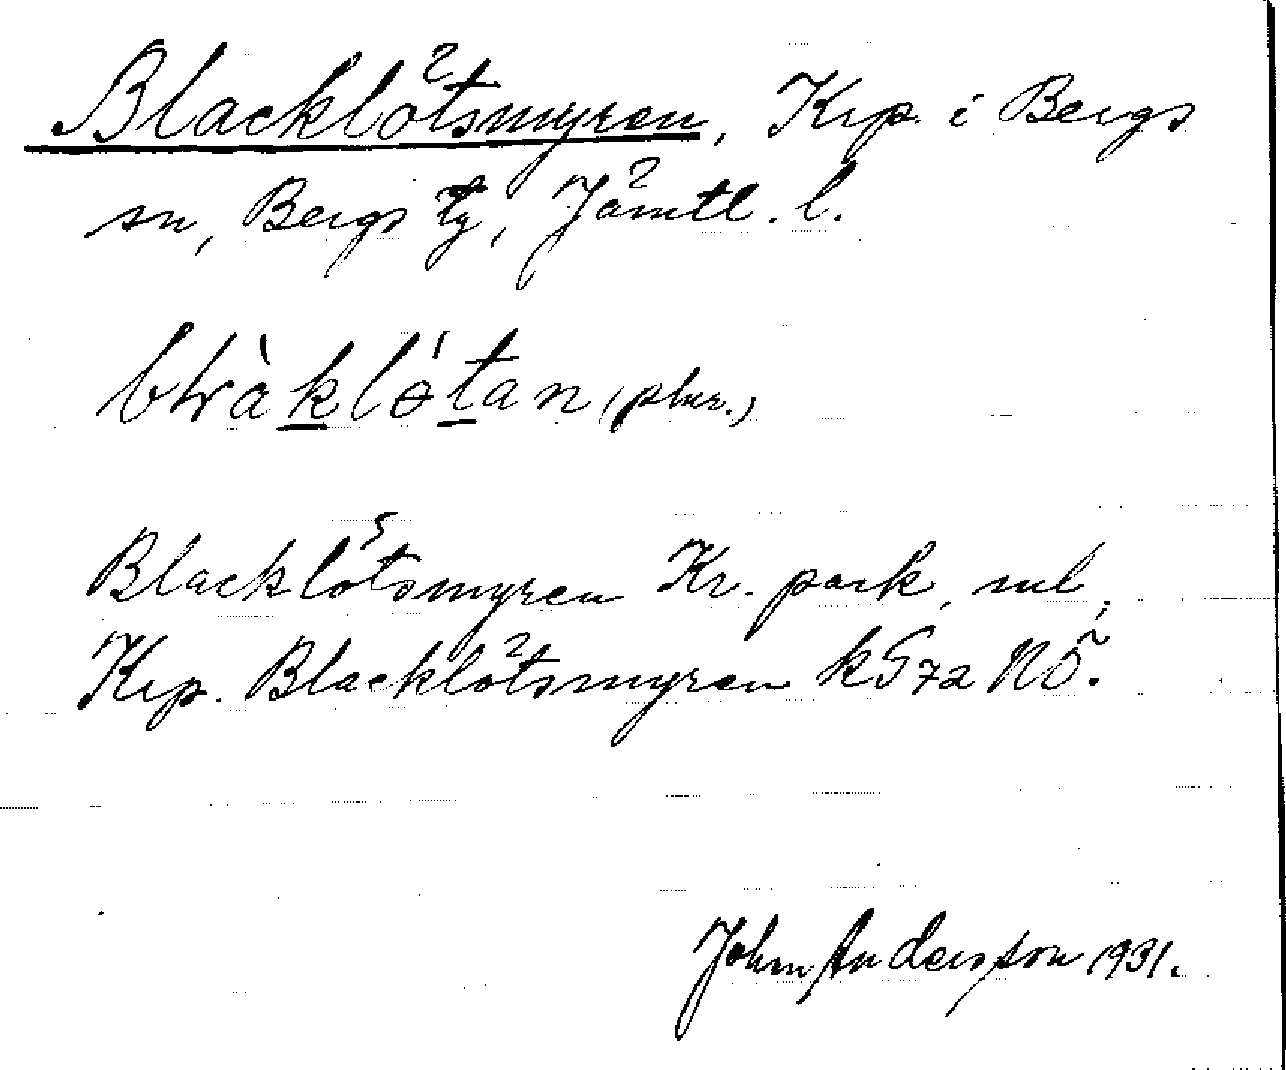 Blacklötsmyren, Krp. i Bergs
sn, Bergs tg, Jämtl. l.
Blacklötsmyren Kr. park, ml,
Krp. Blacklötsmyren kG72 NÖ.
John Andersson 1931.
(plur.)